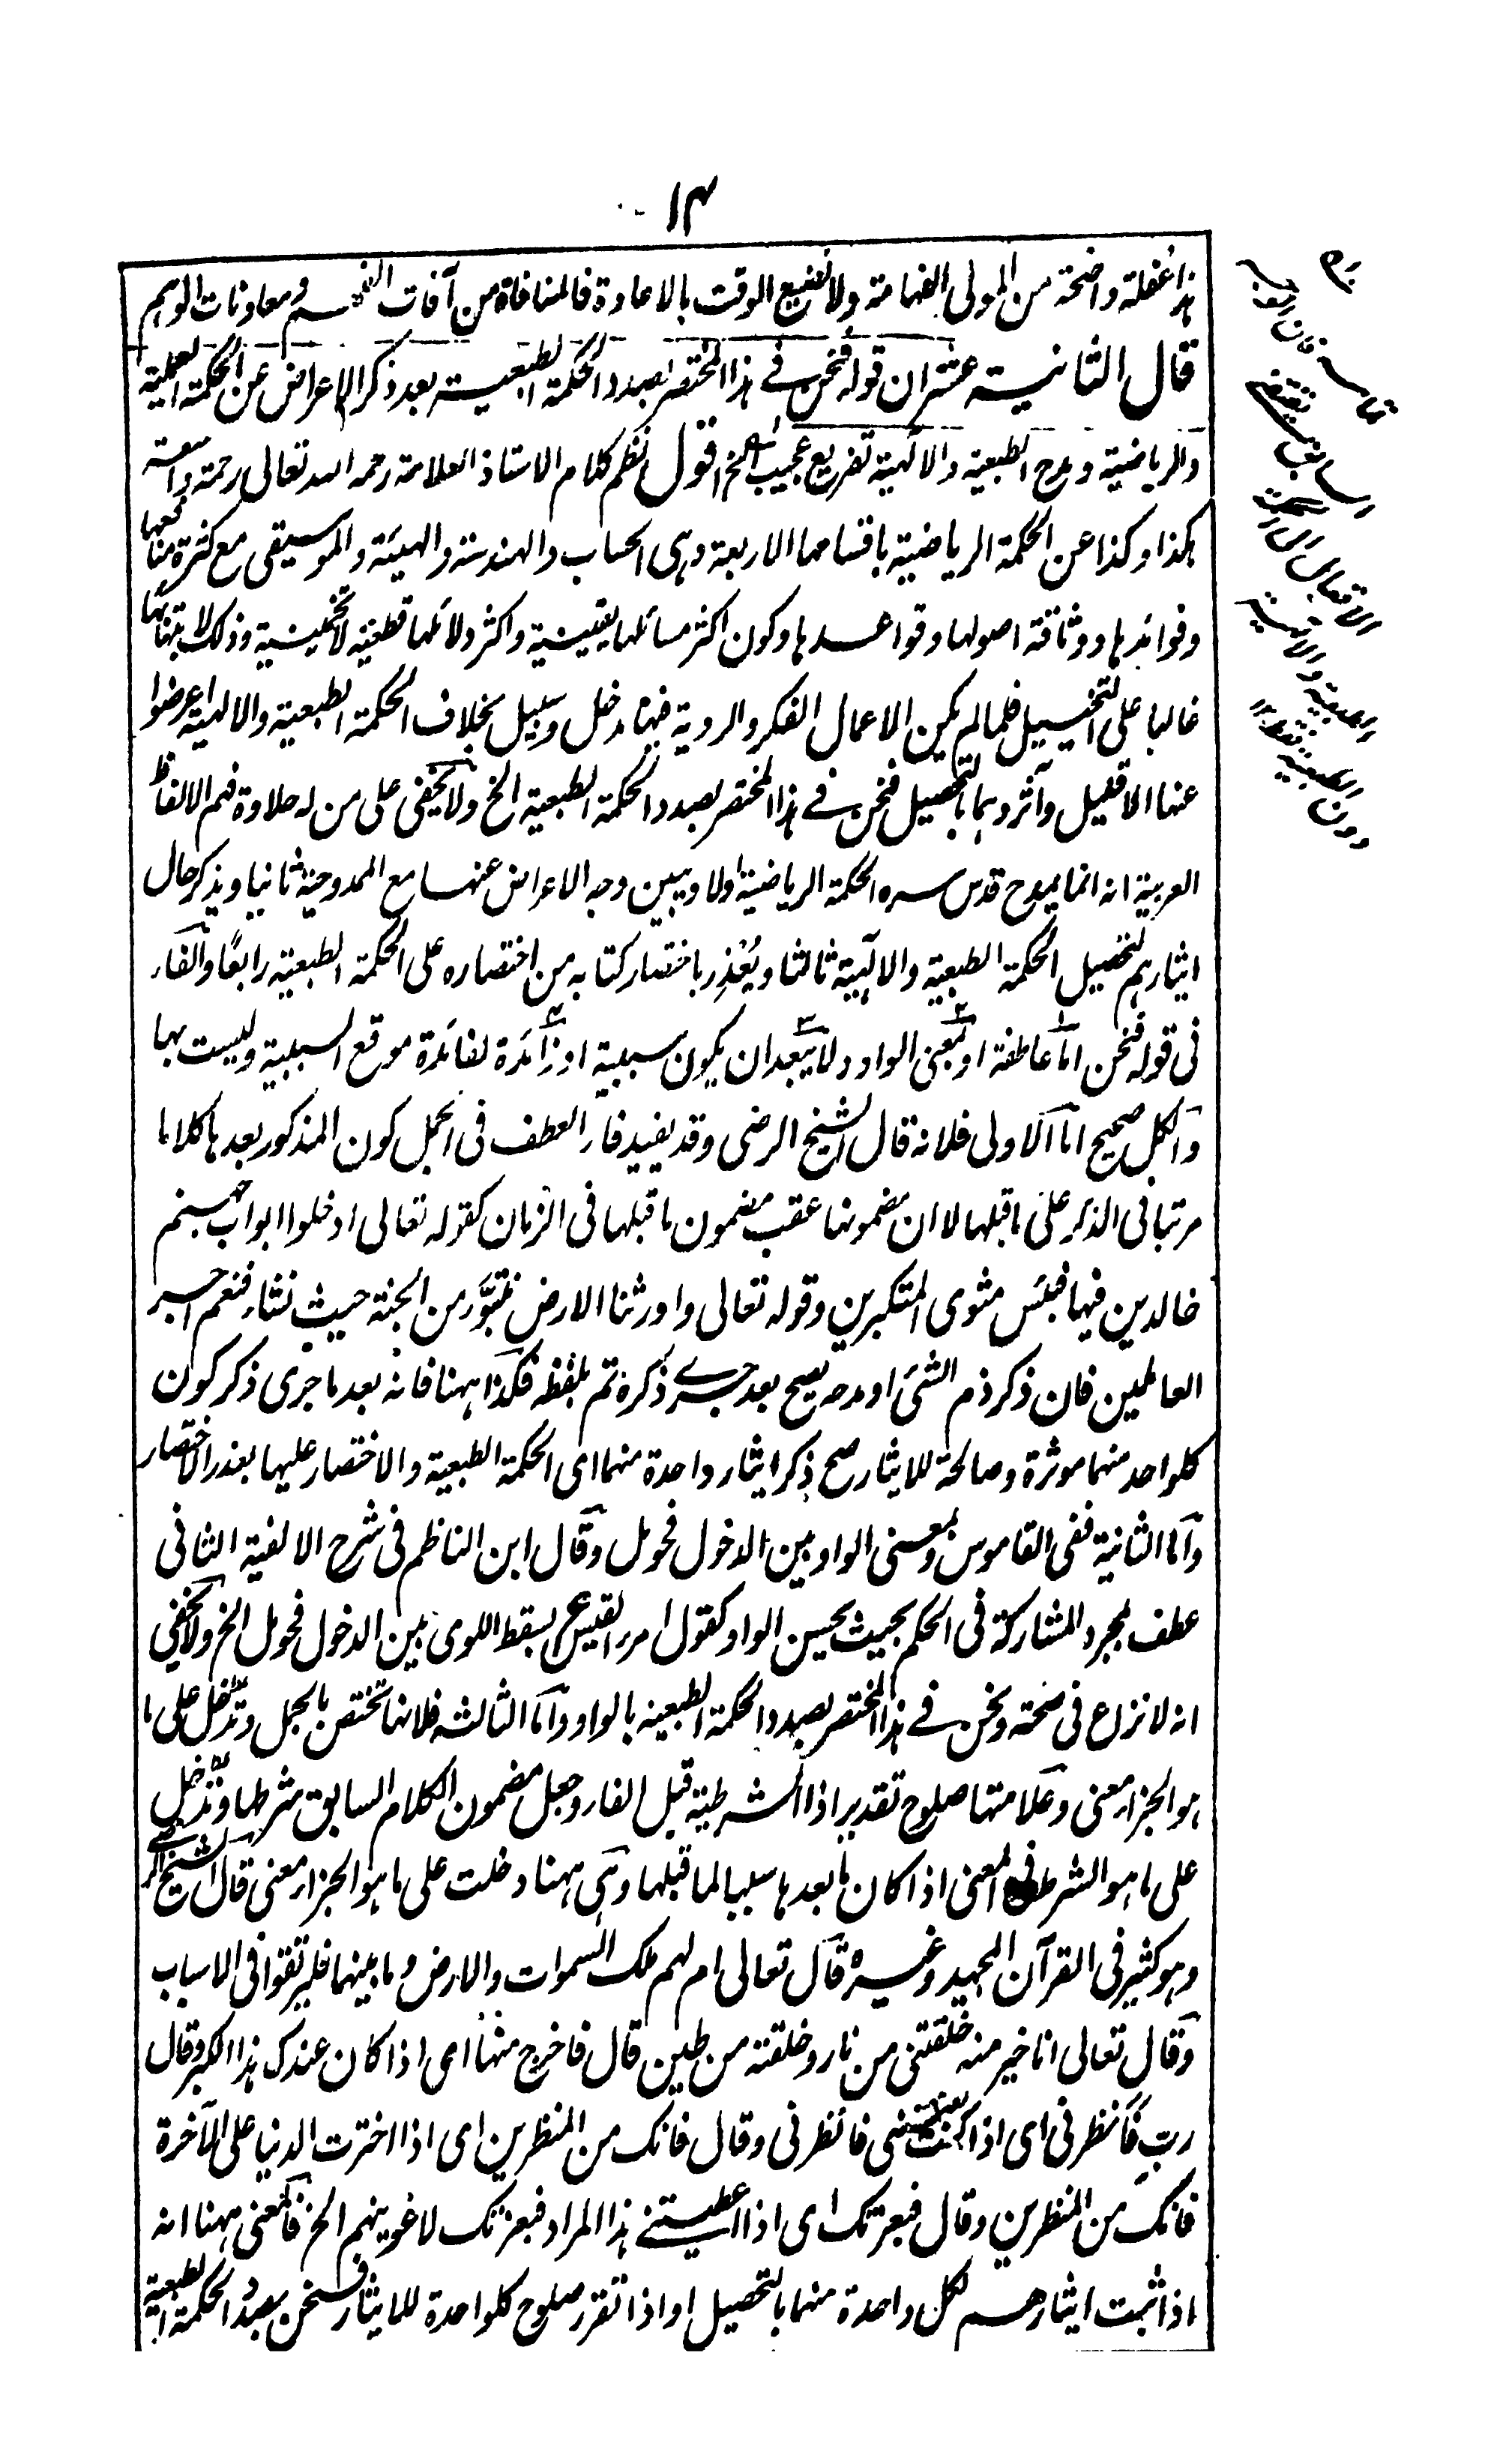 ١٤
هذا غفلة واضحة من المولى الفهامة ولا نضيع الوقت بالاعادة فالمنافاة من آفات الفهم ومعاونات الوهم
قال الثانية عشر ان قوله فنحن في هذا المختصر بصدد الحكمة الطبعية بعد ذكر الاعراض عن الحكمة العملية
والرياضية ومدح الطبعية والالهية تفريع عجيب الخ اقول نظم كلام الاستاذ العلامة رحمه الله تعالى رحمة واسعة
هكذا وكذا عن الحكمة الرياضية باقسامها الاربعة وهى الحساب والهندسة والهيئة والموسيقى مع كثرة منافعها
وفوائدها ووثاقة اصولها وقواعدها وكون اكثر مسائلها يقينية واكثر دلائلها قطعية لا تخمينية وذلك لابتنائها
غالبا على التخييل فلما لم يكن الاعمال الفكر والروية فيها مدخل وسبيل بخلاف الحكمة الطبعية والالهية اعرضوا
عنها الا قليل وآثروهما بالتحصيل فنحن في هذا المختصر بصدد الحكمة الطبعية الخ ولا يخفى على من له حلاوة فهم الالفاظ
العربية انه انما يمدح قدس سره الحكمة الرياضية اولا ويبين وجه الاعراض عنها مع الممدوحية ثانيا ويذكر حال
ايثارهم لتحصيل الحكمة الطبعية والالهية ثالثا ويعذر باختصار كتابه من اختصاره على الحكمة الطبعية رابعًا والفاء
فى قوله فنحن اما عاطفة او بمعنى الواو ولا يبعد ان يكون سببية او زائدة لفائدة موقع السببية وليست بها
والكل صحيح اما الاولى فلانه قال الشيخ الرضى وقد يفيد فاء العطف فى الجمل كون المذكور بعدها كلاما
مرتبا فى الذكر على ما قبلها لا ان مضمونها عقب مضمون ما قبلها فى الزمان كقوله تعالى ادخلوا ابواب جهنم
خالدين فيها فبئس مثوى المتكبرين وقوله تعالى واورثنا الارض نتبوّء من الجنة حيث نشاء فنعم اجر
العاملين فان ذكر ذم الشئ او مدحه يصح بعد جرى ذكره تم بلفظه فكذا ههنا فانه بعد ما جرى ذكر كون
كلواحد منهما موثرة وصالحة للايثار صح ذكر ايثار واحدة منهما اى الحكمة الطبعية والاختصار عليها بعذر الاختصار
واما الثانية ففى القاموس وبمعنى الواو بين الدخول فحومل وقال ابن الناظم فى شرح الالفية الثانى
عطف لمجرد المشاركة فى الحكم بحيث يحسن الواو كقول امرء القيس ع بسقط اللوى بين الدخول فحومل الخ ولا يخفى
انه لا نزاع فى صحته ونحن في هذا المختصر بصدد الحكمة الطبعية بالواو واما الثالثة فلانها تختص بالجمل وتدخل على ما
هو الجزاء معنى وعلامتها صلوح تقدير اذا الشرطية قبل الفاء وجعل مضمون الكلام السابق شرطها وتدخل
على ما هو الشرط فى المعنى اذا كان ما بعدها سببا لما قبلها وهى ههنا دخلت على ما هو الجزاء معنى قال الشيخ الرضى
وهو كثير فى القرآن المجيد وغيره قال تعالى ام لهم ملك السموات والارض وما بينهما فليرتقوا فى الاسباب
وقال تعالى انا خير منه خلقتنى من نار وخلقته من طين قال فاخرج منها اى اذا كان عندك هذا الكبر وقال
رب فانظرنى اى اذا كنت لعنتنى فانظرنى وقال فانك من المنظرين اى اذا اخترت الدنيا على الآخرة
فانك من المنظرين وقال فبعزتك اى اذا اعطيتنى هذا المراد فبعزتك لاغوينهم الخ فالمعنى ههنا انه
اذا ثبت ايثارهم لكل واحدة منهما بالتحصيل او اذا تقرر صلوح كلواحدة للايثار فنحن بصدد الحكمة الطبعية